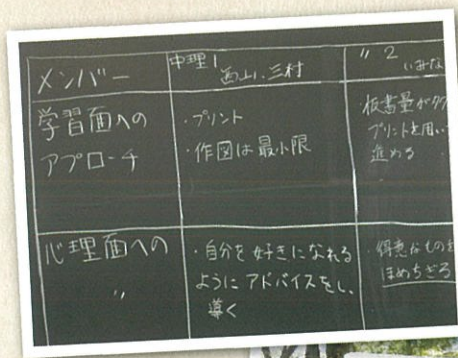 メンバー
中理1
西山、三村
〃2
学習面への
アプローチ
・プリント
・作図は最小限
・板書量が
プリントを用い
進める
心理面への
〃
・自分を好きになれる
ようにアドバイスをし、
導く
・得意なものを
ほめちぎる